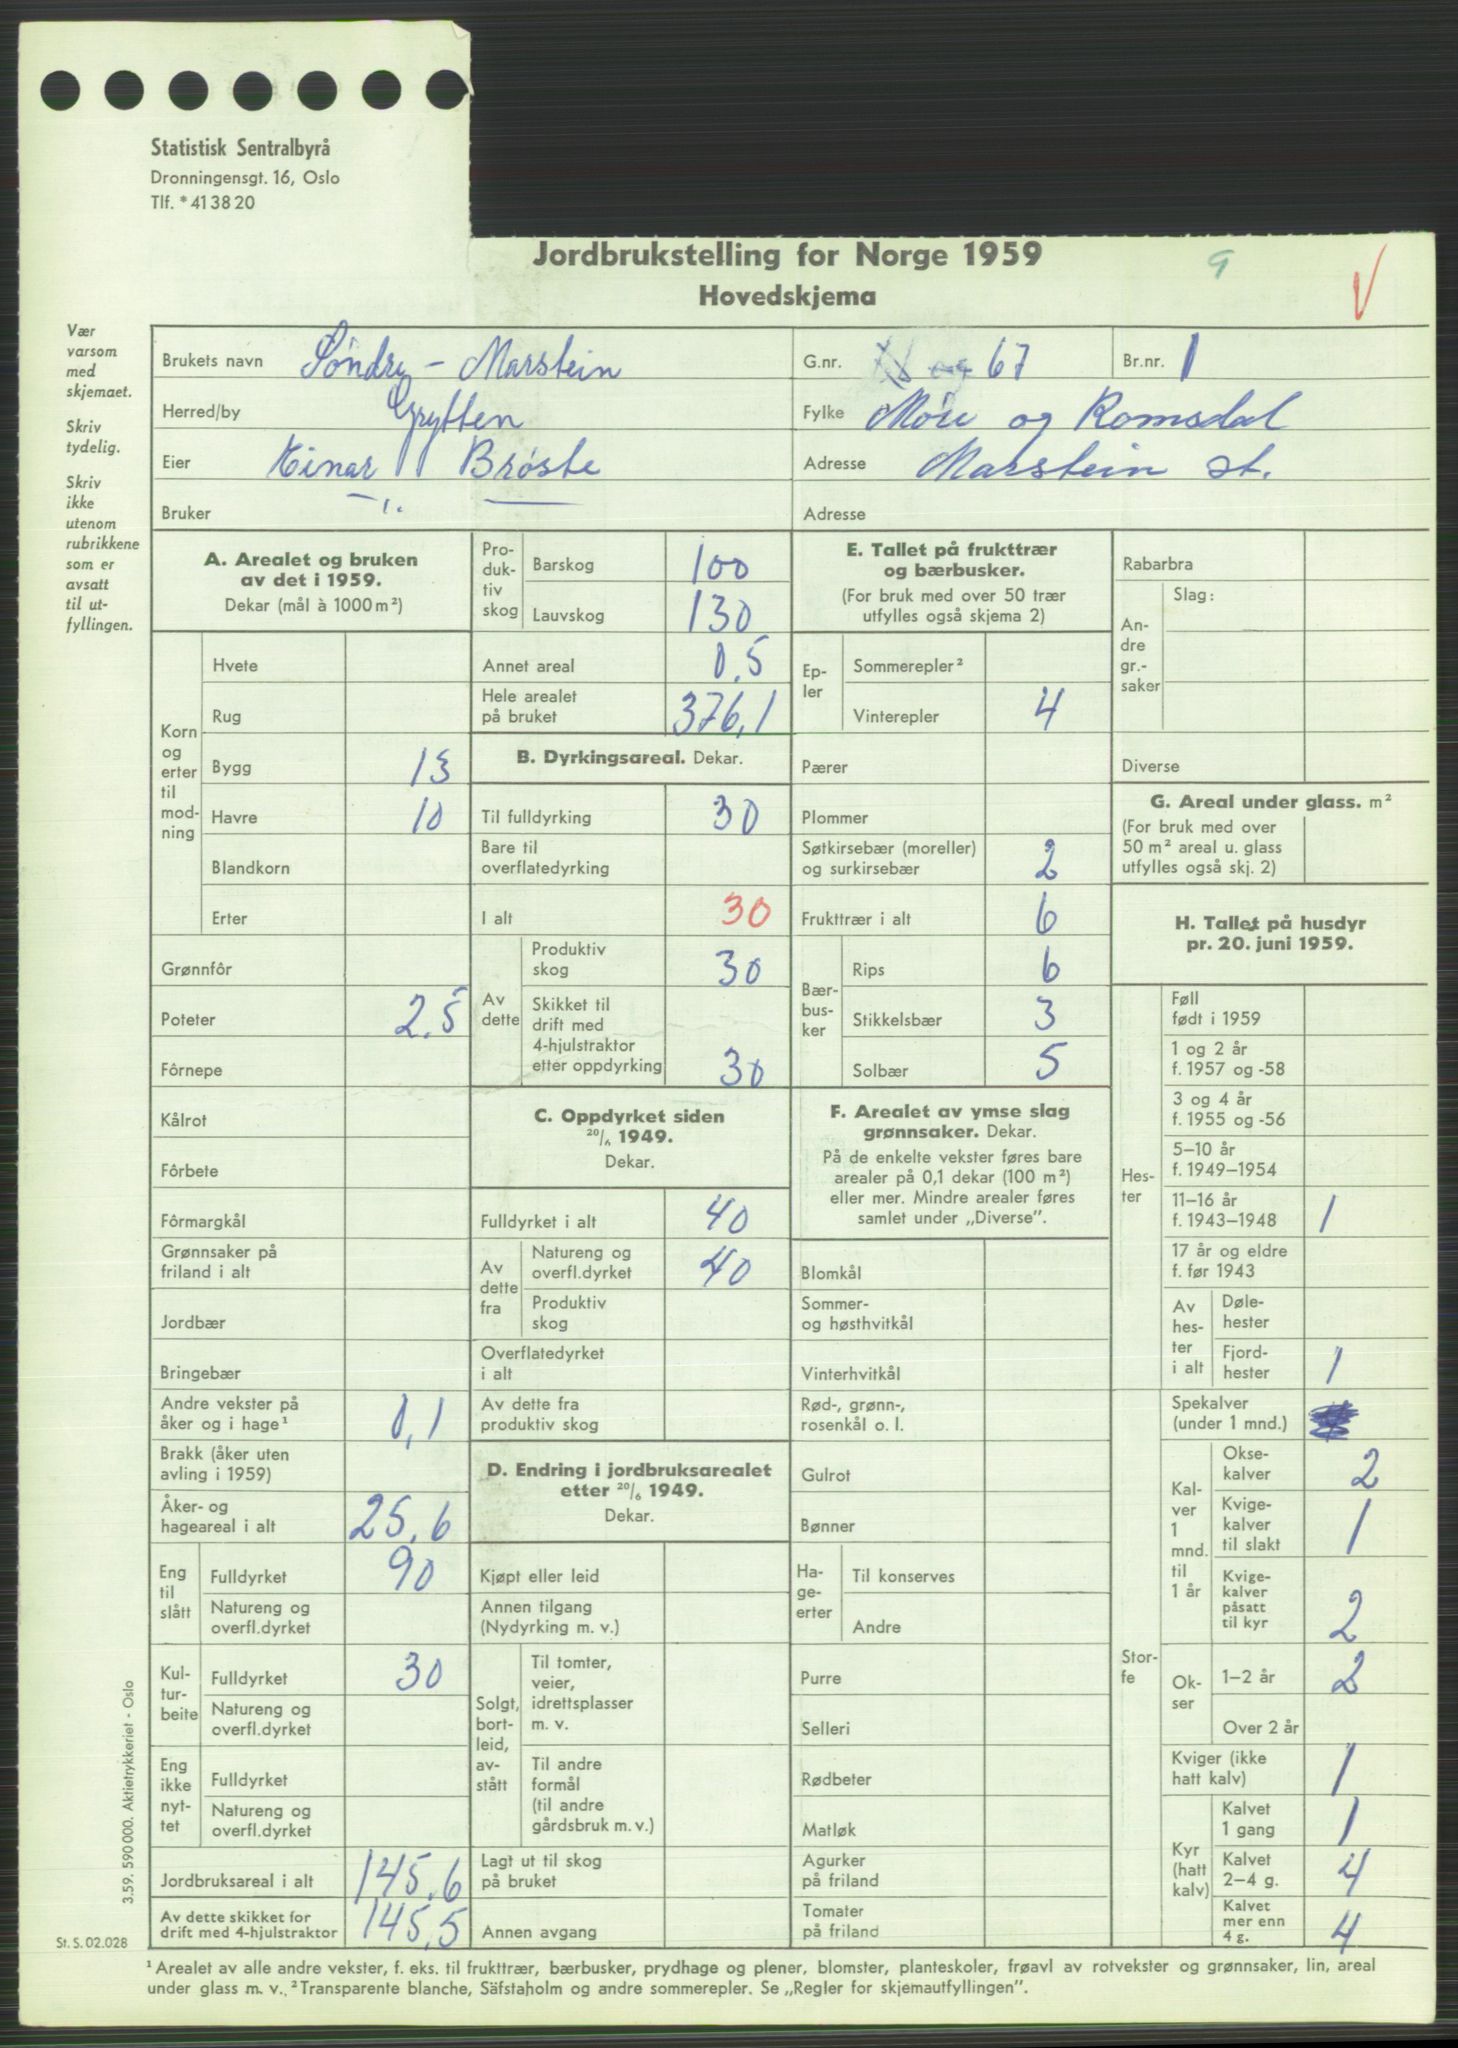 Statistisk Sentralbyrå
Dronningensgt. 16, Oslo
Tlf. * 41 38 20
Jordbrukstelling for Norge 1959
Hovedskjema
9
Vær
varsom
med
skjemaet.
Skriv
tydelig.
Skriv
ikke
utenom
rubrikkene
som er
avsatt
til ut-
fyllingen.
Brukets navn Söndre - Marstein G.nr. 67 Br.nr. 1
Herred/by Grytten Fylke Möre og Romsdal
Eier Einar Bröste Adresse Marstein st.
Bruker — " — Adresse
A. Arealet og bruken
av det i 1959.
Dekar (mål à 1000 m²)
Korn
og
erter
til
mod-
ning
Hvete
Rug
Bygg 13
Havre 10
Blandkorn
Erter
Grønnfôr
Poteter 2,5
Fôrnepe
Kålrot
Fôrbete
Fôrmargkål
Grønnsaker på
friland i alt
Jordbær
Bringebær
Andre vekster på
åker og i hage¹ 0,1
Brakk (åker uten
avling i 1959)
Åker- og
hageareal i alt 25,6
Eng
til
slått
Fulldyrket 90
Natureng og
overfl.dyrket
Kul-
tur-
beite
Fulldyrket 30
Natureng og
overfl.dyrket
Eng
ikke
nyt-
tet
Fulldyrket
Natureng og
overfl.dyrket
Jordbruksareal i alt 145,6
Av dette skikket for
drift med 4-hjulstraktor 145,5
Pro-
duk-
tiv
skog
Barskog 100
Lauvskog 130
Annet areal 0,5
Hele arealet
på bruket 376,1
B. Dyrkingsareal. Dekar.
Til fulldyrking 30
Bare til
overflatedyrking
I alt 30
Av
dette
Produktiv
skog 30
Skikket til
drift med
4-hjulstraktor
etter oppdyrking 30
C. Oppdyrket siden
20/6 1949.
Dekar.
Fulldyrket i alt 40
Av
dette
fra
Natureng og
overfl.dyrket 40
Produktiv
skog
Overflatedyrket
i alt
Av dette fra
produktiv skog
D. Endring i jordbruksarealet
etter 20/6 1949.
Dekar.
Kjøpt eller leid
Annen tilgang
(Nydyrking m. v.)
Solgt,
bort-
leid,
av-
stått
Til tomter,
veier,
idrettsplasser
m. v.
Til andre
formål
(til andre
gårdsbruk m. v.)
Lagt ut til skog
på bruket
Annen avgang
E. Tallet på frukttrær
og bærbusker.
(For bruk med over 50 trær
utfylles også skjema 2)
Ep-
ler
Sommerepler²
Vinterepler 4
Pærer
Plommer
Søtkirsebær (moreller)
og surkirsebær 2
Frukttrær i alt 6
Bær-
bus-
ker
Rips 6
Stikkelsbær 3
Solbær 5
F. Arealet av ymse slag
grønnsaker. Dekar.
På de enkelte vekster føres bare
arealer på 0,1 dekar (100 m²)
eller mer. Mindre arealer føres
samlet under „Diverse”.
Blomkål
Sommer-
og høsthvitkål
Vinterhvitkål
Rød-, grønn-,
rosenkål o. l.
Gulrot
Bønner
Ha-
ge-
erter
Til konserves
Andre
Purre
Selleri
Rødbeter
Matløk
Agurker
på friland
Tomater
på friland
Rabarbra
An-
dre
gr.-
saker
Slag:
Diverse
G. Areal under glass. m²
(For bruk med over
50 m² areal u. glass
utfylles også skj. 2)
H. Tallet på husdyr
pr. 20. juni 1959.
Hes-
ter
Føll
født i 1959
1 og 2 år
f. 1957 og -58
3 og 4 år
f. 1955 og -56
5–10 år
f. 1949–1954
11–16 år
f. 1943–1948 1
17 år og eldre
f. før 1943
Av
hes-
ter
i alt
Døle-
hester
Fjord-
hester 1
Stor-
fe
Spekalver
(under 1 mnd.)
Kal-
ver
1
mnd.
til
1 år
Okse-
kalver 2
Kvige-
kalver
til slakt 1
Kvige-
kalver
påsatt
til kyr 2
Ok-
ser
1–2 år 2
Over 2 år
Kviger (ikke
hatt kalv) 1
Kyr
(hatt
kalv)
Kalvet
1 gang 1
Kalvet
2–4 g. 4
Kalvet
mer enn
4 g. 4
3.59. 590 000. Aktietrykkeriet - Oslo
St. S. 02.028
¹ Arealet av alle andre vekster, f. eks. til frukttrær, bærbusker, prydhage og plener, blomster, planteskoler, frøavl av rotvekster og grønnsaker, lin, areal
under glass m. v. ² Transparente blanche, Säfstaholm og andre sommerepler. Se „Regler for skjemautfyllingen”.